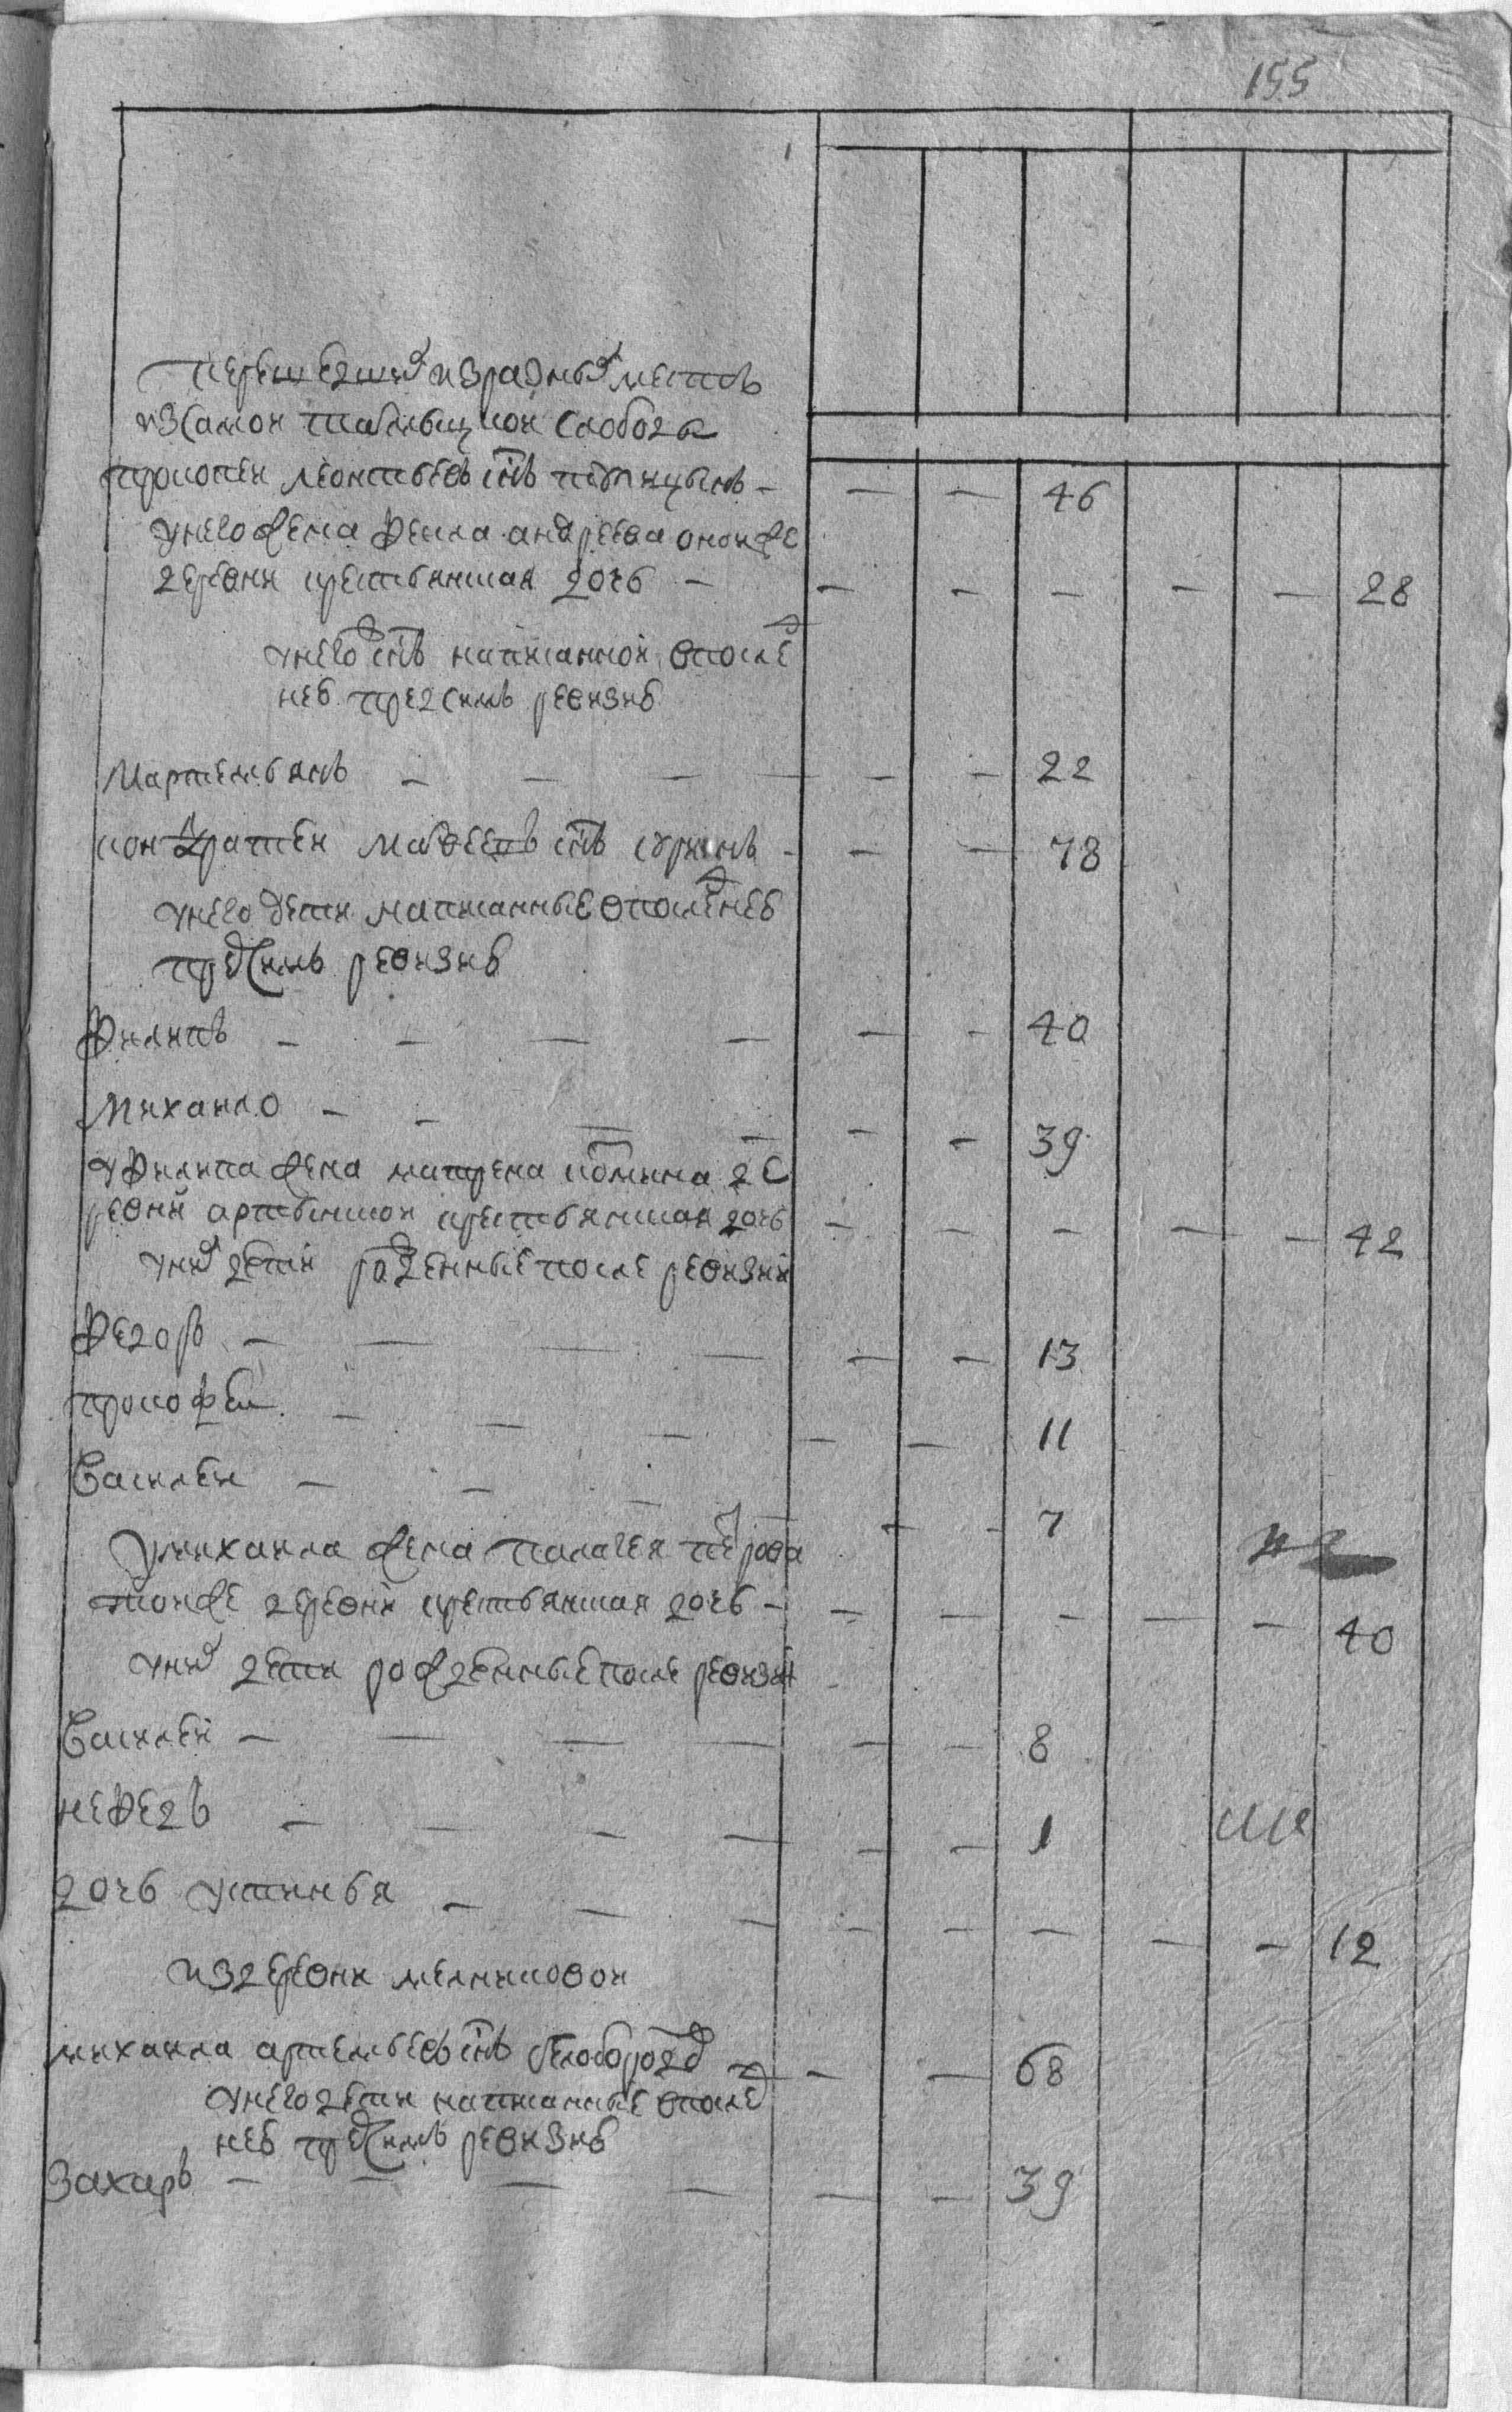 155
перешедших из разных местъ
из самой Тавлыцкой слободы
прокопей леонтьевъ снъ птицынъ — — — 46
у него жена фекла андреева оной же
деревни крестьянская дочь — — — — — — 28
у него снъ написанной в послед
ней пред симъ ревизиі
Мартемьянъ — — — — — — 22
кондратей матвеевъ снъ — — 78
у него дети написанные в последней
пред симъ ревизиі
Филипъ — — — — — — 40
Михайло — — — — — — 39
у Филипа жена матрена де
ревни крестьянская дочь — — — — — 42
у них дети рожденные после ревизиі
Федоръ — — — — — — 13
прокофей — — — — — 11
Василей — — — — — 7
у михаила жена палагея петрова
той же деревни крестьянская дочь — — — — — — 40
у них дети рожденные после ревизиі
Василей — — — — — — 8
неФедъ — — — — — — 1
дочь устинья — — — — — — — — 12
из деревни мелниковой
михаила артемьевъ снъ белобородов — — 68
у него дети написанные в послед
ней пред симъ ревизиі
Захаръ — — — — — — 39